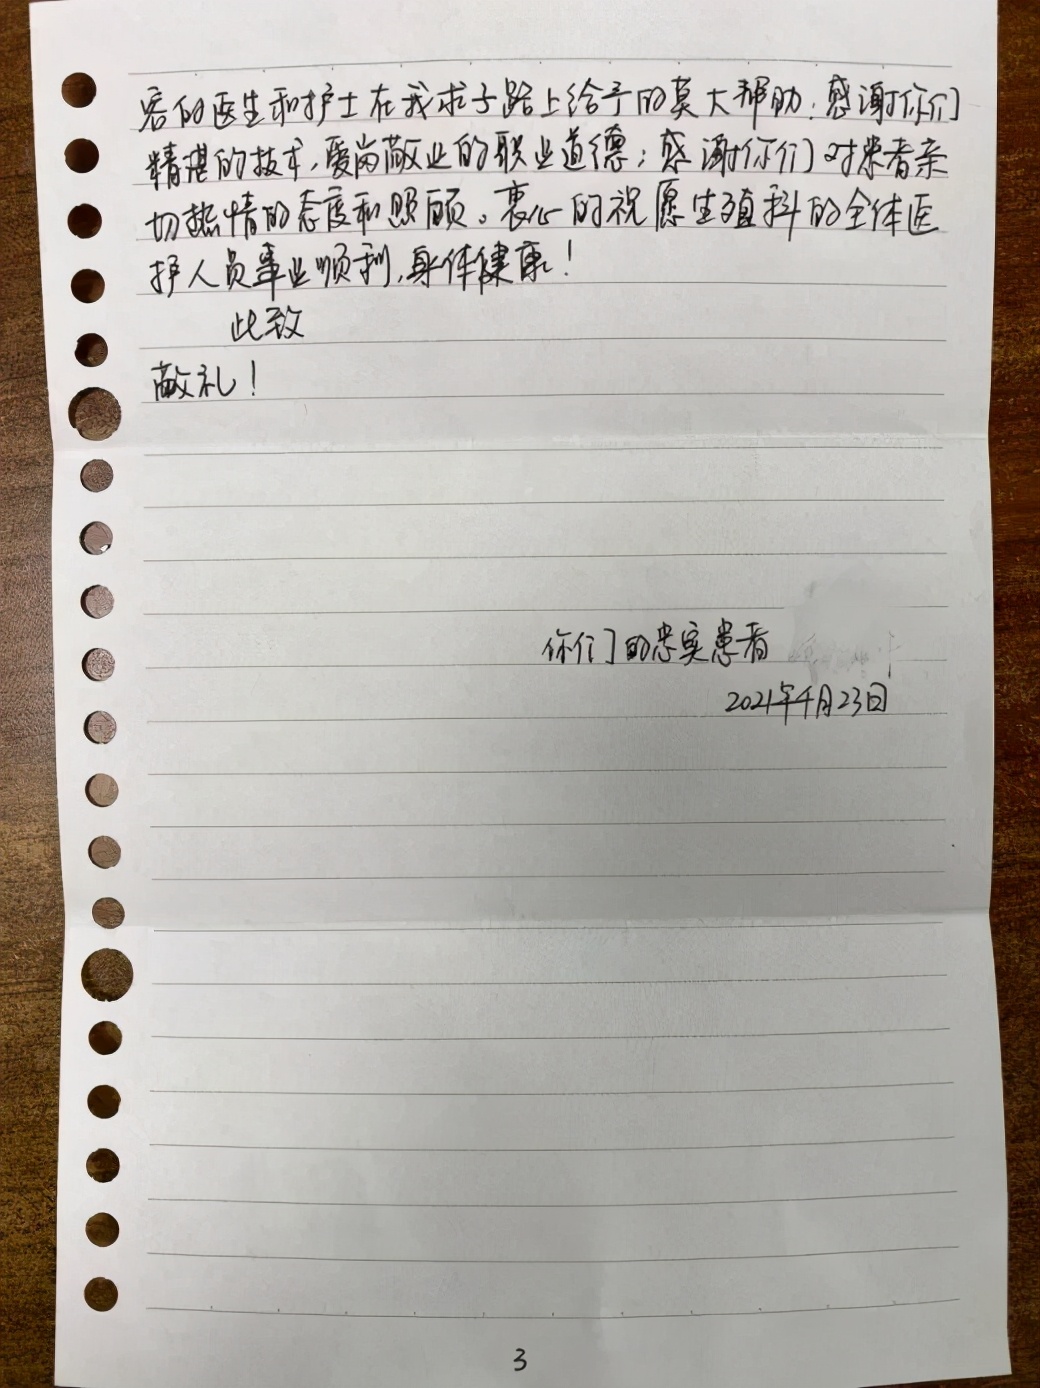 容的医生和护士在我求子路上给予的莫大帮助；感谢你们
精湛的技术，爱岗敬业的职业道德；感谢你们对患者亲
切热情的态度和照顾。衷心的祝愿生殖科的全体医
护人员事业顺利，身体健康！
此致
敬礼！
你们的忠实患者
2021年4月23日
3